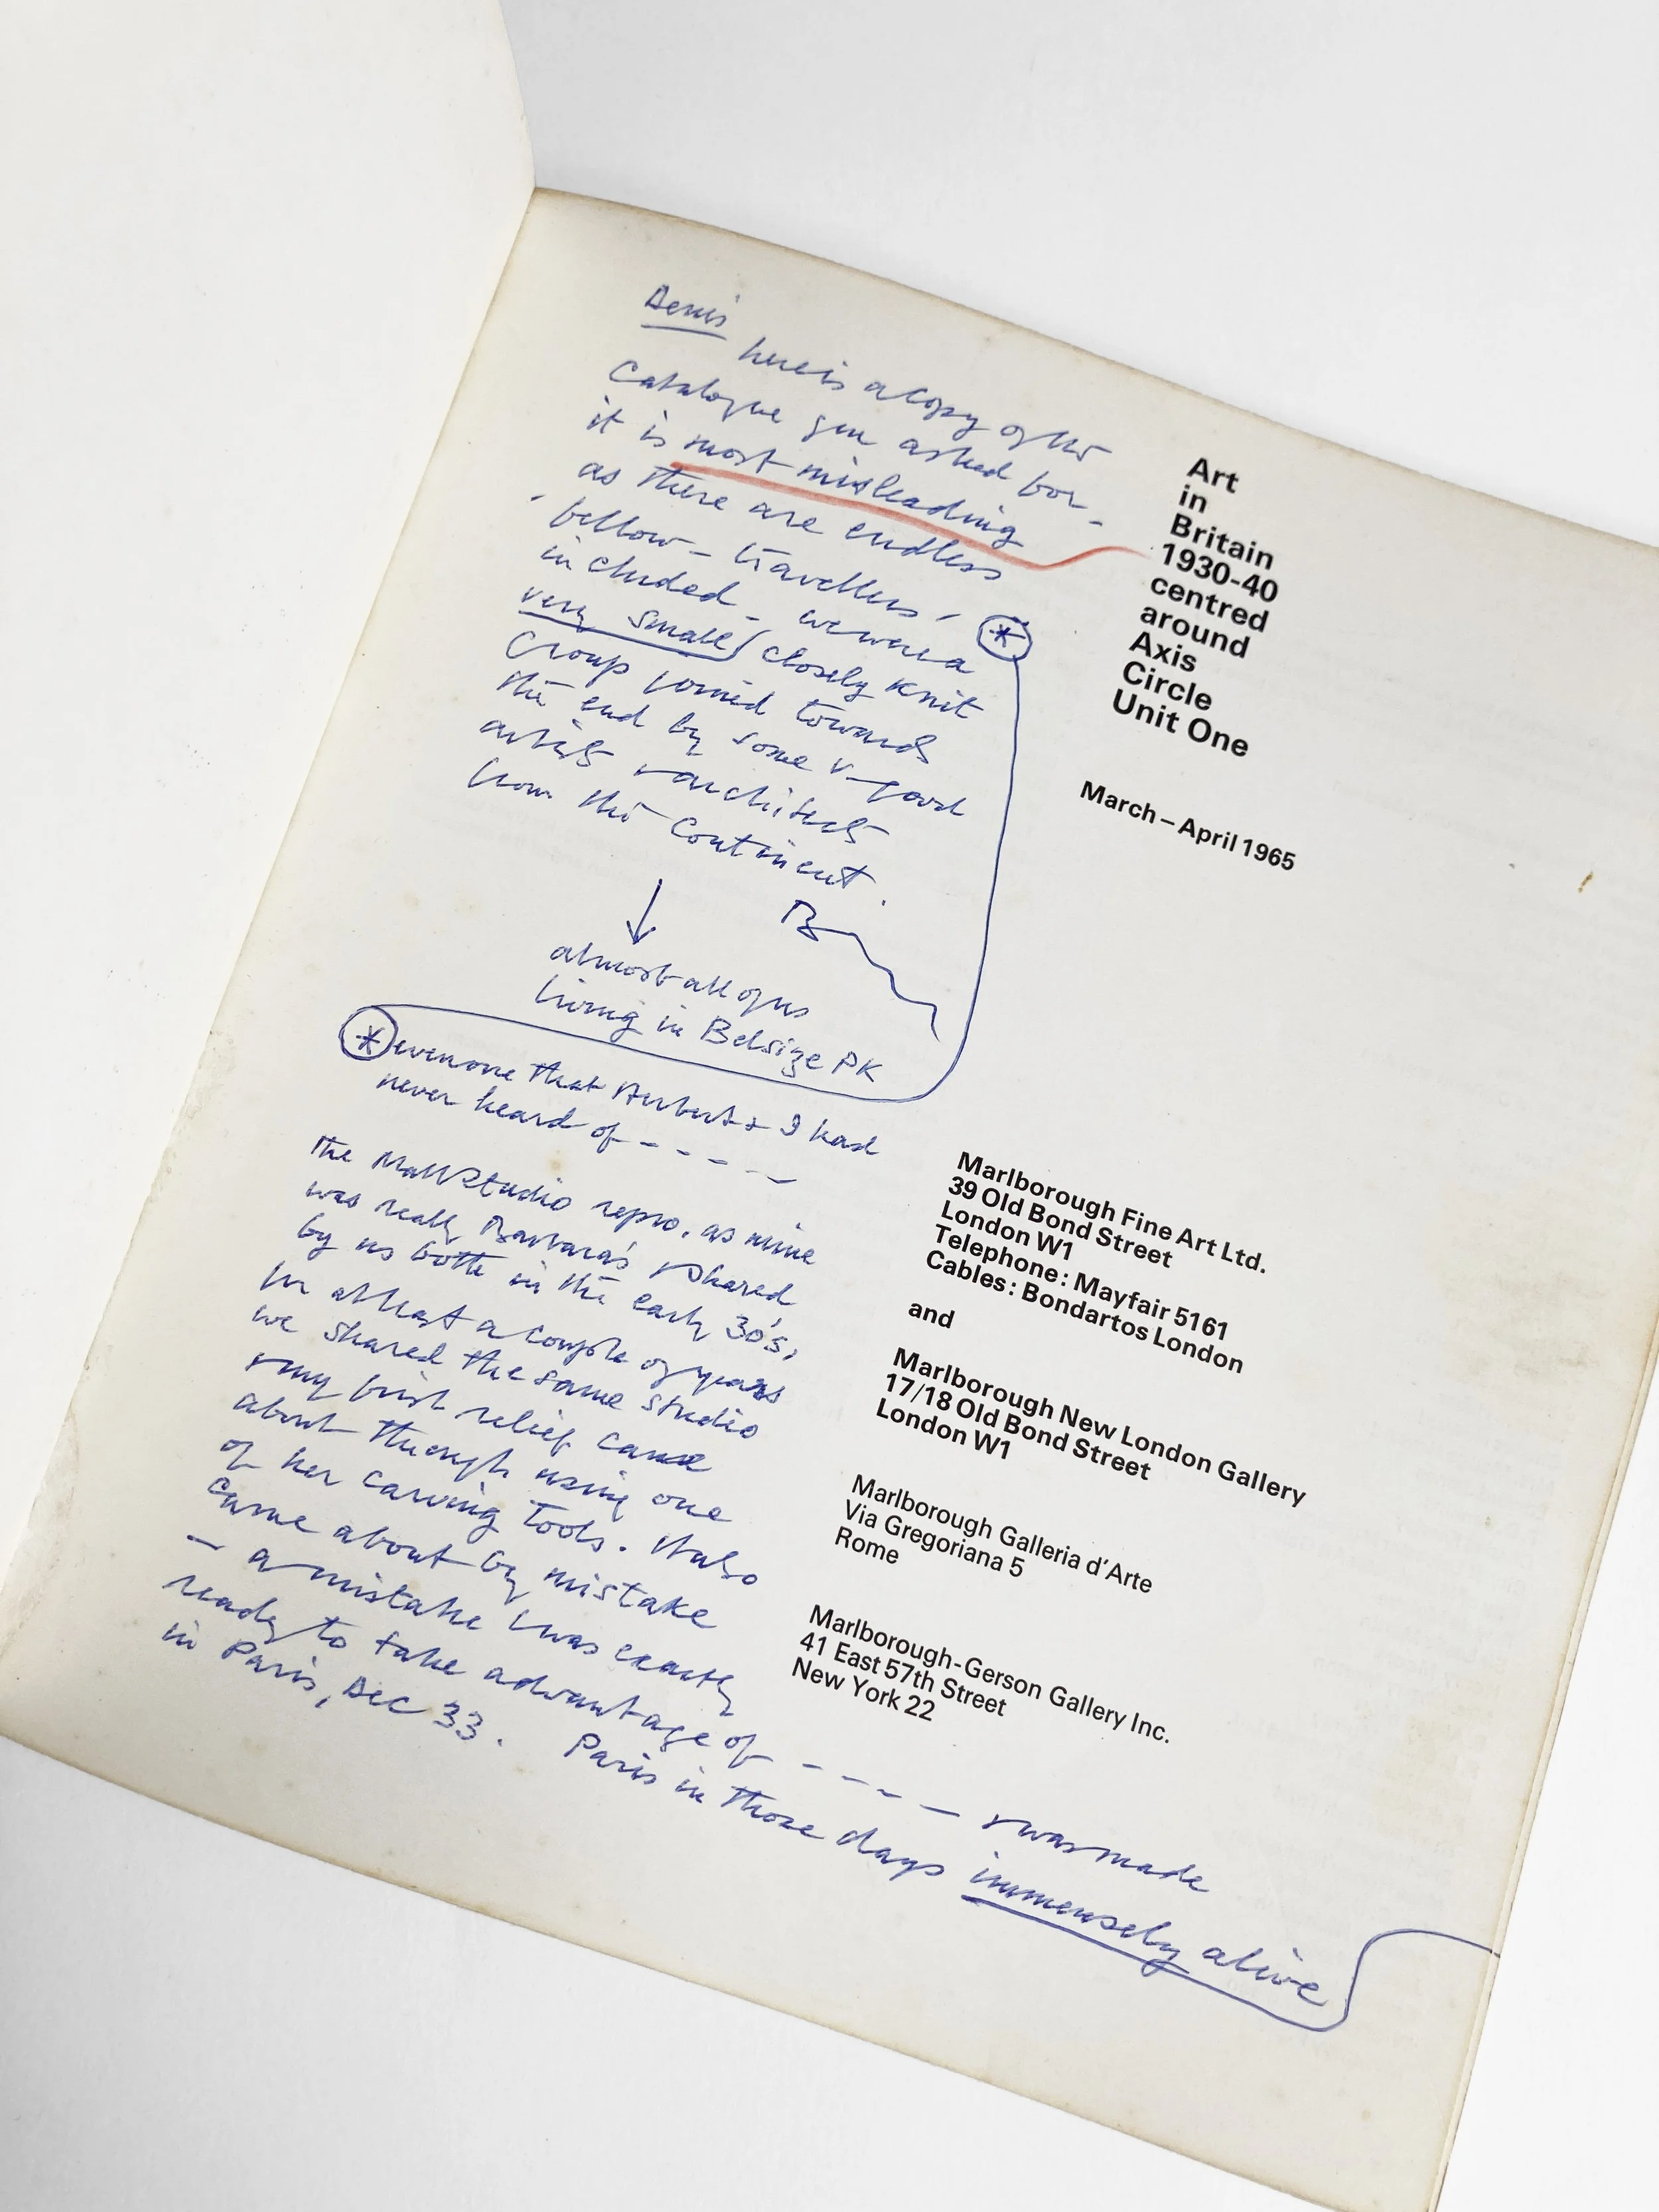 Denis
here is a copy of the
Catalogue you asked for -
it is most misleading
as there are endless
'fellow-travellers'
included - we were a
very small closely knit
Group joined towards
the end by some v-good
artists & architects
from the Continent.
B
almost all of us
living in Belsize PK
* even one that Herbert & I had
never heard of - - - - -
The Mall Studio repro. as mine
was really Barbara's & shared
by us both in the early 30's,
for at least a couple of years
we shared the same studio
& my first relief came
about through using one
of her carving tools. It also
came about by mistake
- a mistake I was exactly
ready to take advantage of - - - - & was made
in Paris, Dec 33. Paris in those days immensely alive
Art
in
Britain
1930-40
centred
around
Axis
Circle
Unit One
March – April 1965
Marlborough Fine Art Ltd.
39 Old Bond Street
London W1
Telephone: Mayfair 5161
Cables: Bondartos London
and
Marlborough New London Gallery
17/18 Old Bond Street
London W1
Marlborough Galleria d'Arte
Via Gregoriana 5
Rome
Marlborough-Gerson Gallery Inc.
41 East 57th Street
New York 22